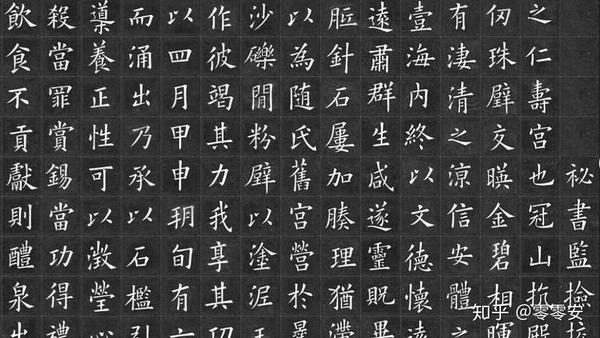 祕書監撿
之仁壽宮也冠山抗殿
仞珠璧交暎金碧相暉
有淒清之涼信安體之
壹海內終以文德懷遠
遠肅群生咸遂靈貺畢
胝針石屢加腠理猶滯
以為隨氏舊宮營於曩
沙礫閒粉壁以塗泥玉
作彼竭其力我享其功
以四月甲申朔旬有六
而涌出乃承以石檻引
導養正性可以澂瑩心
殺當罪賞錫當功得禮
飲食不貢獻則醴泉出
知乎 @零零安